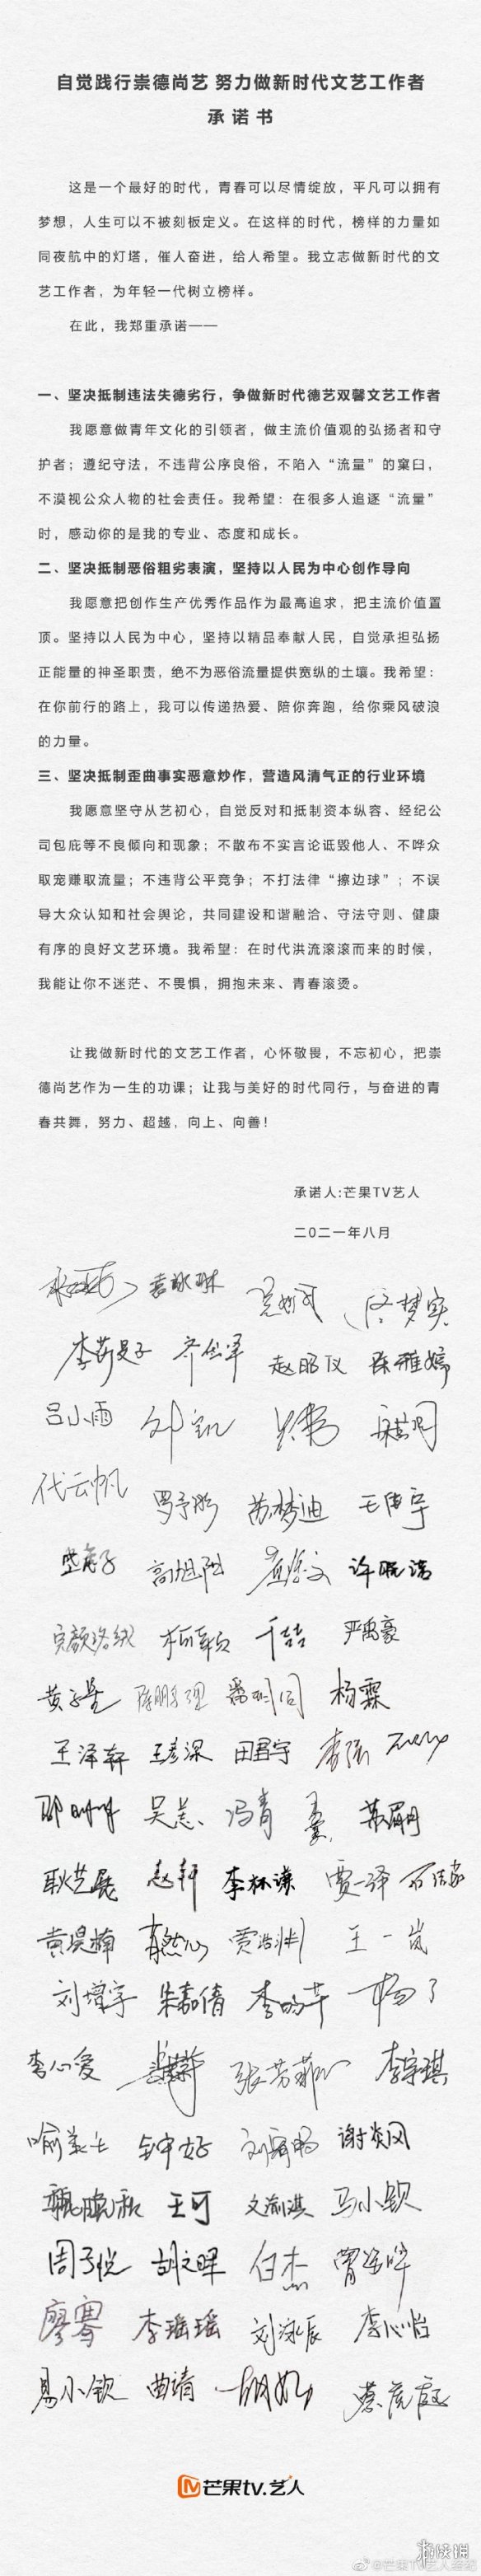 自觉践行崇德尚艺 努力做新时代文艺工作者
承诺书
这是一个最好的时代，青春可以尽情绽放，平凡可以拥有
梦想，人生可以不被刻板定义。在这样的时代，榜样的力量如
同夜航中的灯塔，催人奋进，给人希望。我立志做新时代的文
艺工作者，为年轻一代树立榜样。
在此，我郑重承诺——
一、坚决抵制违法失德劣行，争做新时代德艺双馨文艺工作者
我愿意做青年文化的引领者，做主流价值观的弘扬者和守
护者；遵纪守法，不违背公序良俗，不陷入“流量”的窠臼，
不漠视公众人物的社会责任。我希望：在很多人追逐“流量”
时，感动你的是我的专业、态度和成长。
二、坚决抵制恶俗粗劣表演，坚持以人民为中心创作导向
我愿意把创作生产优秀作品作为最高追求，把主流价值置
顶。坚持以人民为中心，坚持以精品奉献人民，自觉承担弘扬
正能量的神圣职责，绝不为恶俗流量提供宽纵的土壤。我希望：
在你前行的路上，我可以传递热爱、陪你奔跑，给你乘风破浪
的力量。
三、坚决抵制歪曲事实恶意炒作，营造风清气正的行业环境
我愿意坚守从艺初心，自觉反对和抵制资本纵容、经纪公
司包庇等不良倾向和现象；不散布不实言论诋毁他人、不哗众
取宠赚取流量；不违背公平竞争；不打法律“擦边球”；不误
导大众认知和社会舆论，共同建设和谐融洽、守法守则、健康
有序的良好文艺环境。我希望：在时代洪流滚滚而来的时候，
我能让你不迷茫、不畏惧，拥抱未来、青春滚烫。
让我做新时代的文艺工作者，心怀敬畏，不忘初心，把崇
德尚艺作为一生的功课；让我与美好的时代同行，与奋进的青
春共舞，努力、超越，向上、向善！
承诺人:芒果TV艺人
二〇二一年八月
袁咏琳
李莎旻子 赵昭仪 陈雅婷
吕小雨
代云帆 罗予彤 苏梦迪 王倩宇
高旭阳 许晓诺
完颜洛绒 严禹豪
黄子星 杨霖
王泽轩 王彦深 田君宇
吴恙 冯青
耿艺展 赵轩 李林谦 贾一泽
黄昊楠 肖然心 贾浩淋 王一岚
刘增宇 朱嘉倩 李昀芊 杨了
李心爱 张芳菲 李宇琪
钟好 谢炎风
王可 马小钦
周子悦 胡文晖 白杰
廖骞 李瑶瑶 刘泳辰 李心怡
易小钦 曲靖
芒果tv.艺人
@芒果TV艺人经纪